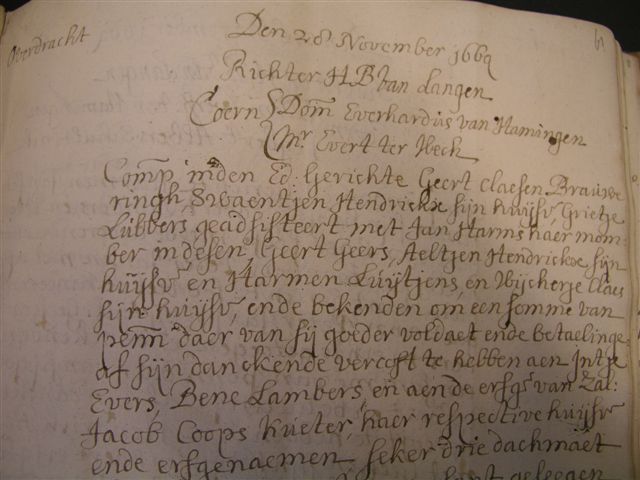 Overdracht
Den 28 November 1669
Richter H B van Langen
Coern Dom Everhardus van Hamingen
Mr Evert ter Beck
Comp inden Ed. Gerichte Geert Claesen Brauwe
ringh Swaentjen Hendrickx sijn huijsv Grietje
Lubbers geadsisteert met Jan Harms haer mom
ber in desen, Geert Geers, Aeltjen Hendrickx sijn
huijsv en Harmen Luijtjens, en Wijcherje Claes
sijn huijsv, ende bekenden om een somme van
penn daer van sij goeder voldaet ende betaelinge
af sijn danckende vercoft te hebben aen Jntje
Evers, Bene Lambers, en aen de erfg van Zal:
Jacob Coops Kueter, haer respective huijsv
ende erfgenaemen seker drie dachmaet
geleegen